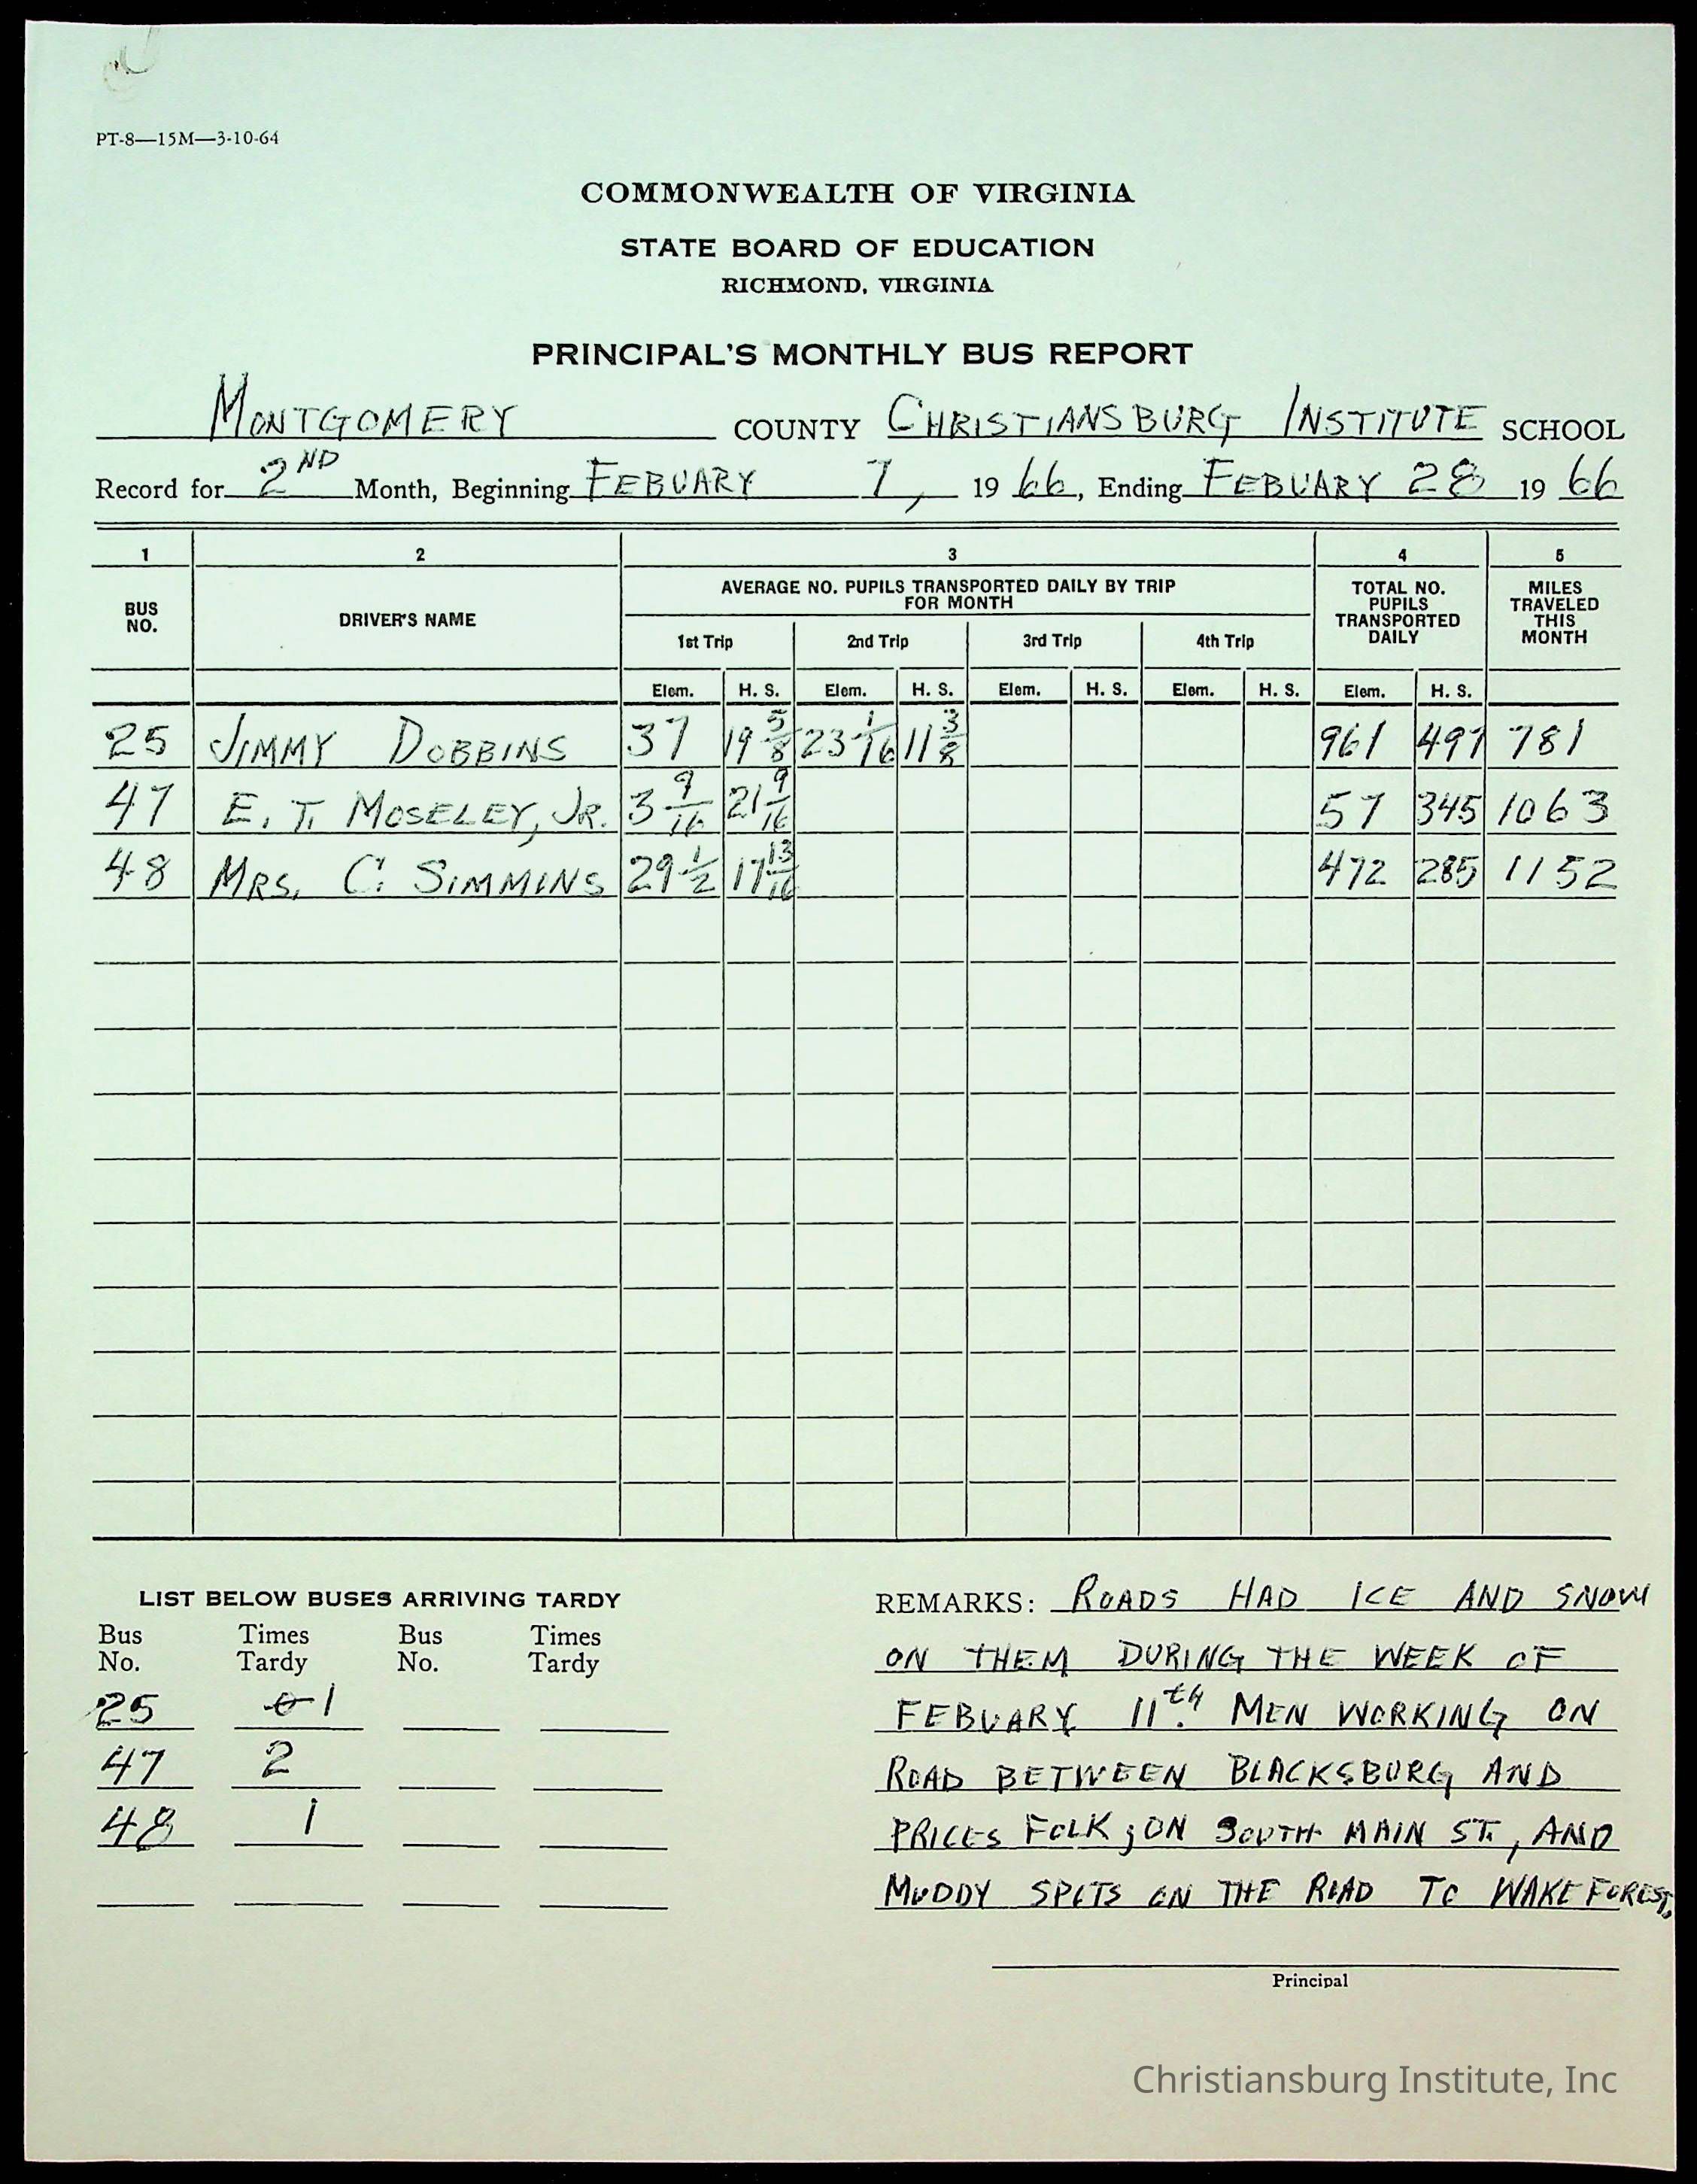 PT-8—15M—3-10-64
COMMONWEALTH OF VIRGINIA
STATE BOARD OF EDUCATION
RICHMOND, VIRGINIA
PRINCIPAL'S MONTHLY BUS REPORT
MONTGOMERY COUNTY CHRISTIANSBURG INSTITUTE SCHOOL
Record for 2ND Month, Beginning FEBUARY 1, 19 66, Ending FEBUARY 28 19 66
1 2 3 4 5
BUS NO. DRIVER'S NAME AVERAGE NO. PUPILS TRANSPORTED DAILY BY TRIP FOR MONTH TOTAL NO. PUPILS TRANSPORTED DAILY MILES TRAVELED THIS MONTH
1st Trip 2nd Trip 3rd Trip 4th Trip
Elem. H. S. Elem. H. S. Elem. H. S. Elem. H. S. Elem. H. S.
25 JIMMY DOBBINS 37 19 5/8 23 1/16 11 3/8 961 497 781
47 E. T. MOSELEY, JR. 3 9/16 21 9/16 57 345 1063
48 MRS. C. SIMMINS 29 1/2 17 13/16 472 285 1152
LIST BELOW BUSES ARRIVING TARDY
Bus No. Times Tardy Bus No. Times Tardy
25 0 1
47 2
48 1
REMARKS: ROADS HAD ICE AND SNOW
ON THEM DURING THE WEEK OF
FEBUARY 11th. MEN WORKING ON
ROAD BETWEEN BLACKSBURG AND
PRICES FOLK; ON SOUTH MAIN ST., AND
MUDDY SPOTS ON THE ROAD TO WAKE FOREST.
Principal
Christiansburg Institute, Inc